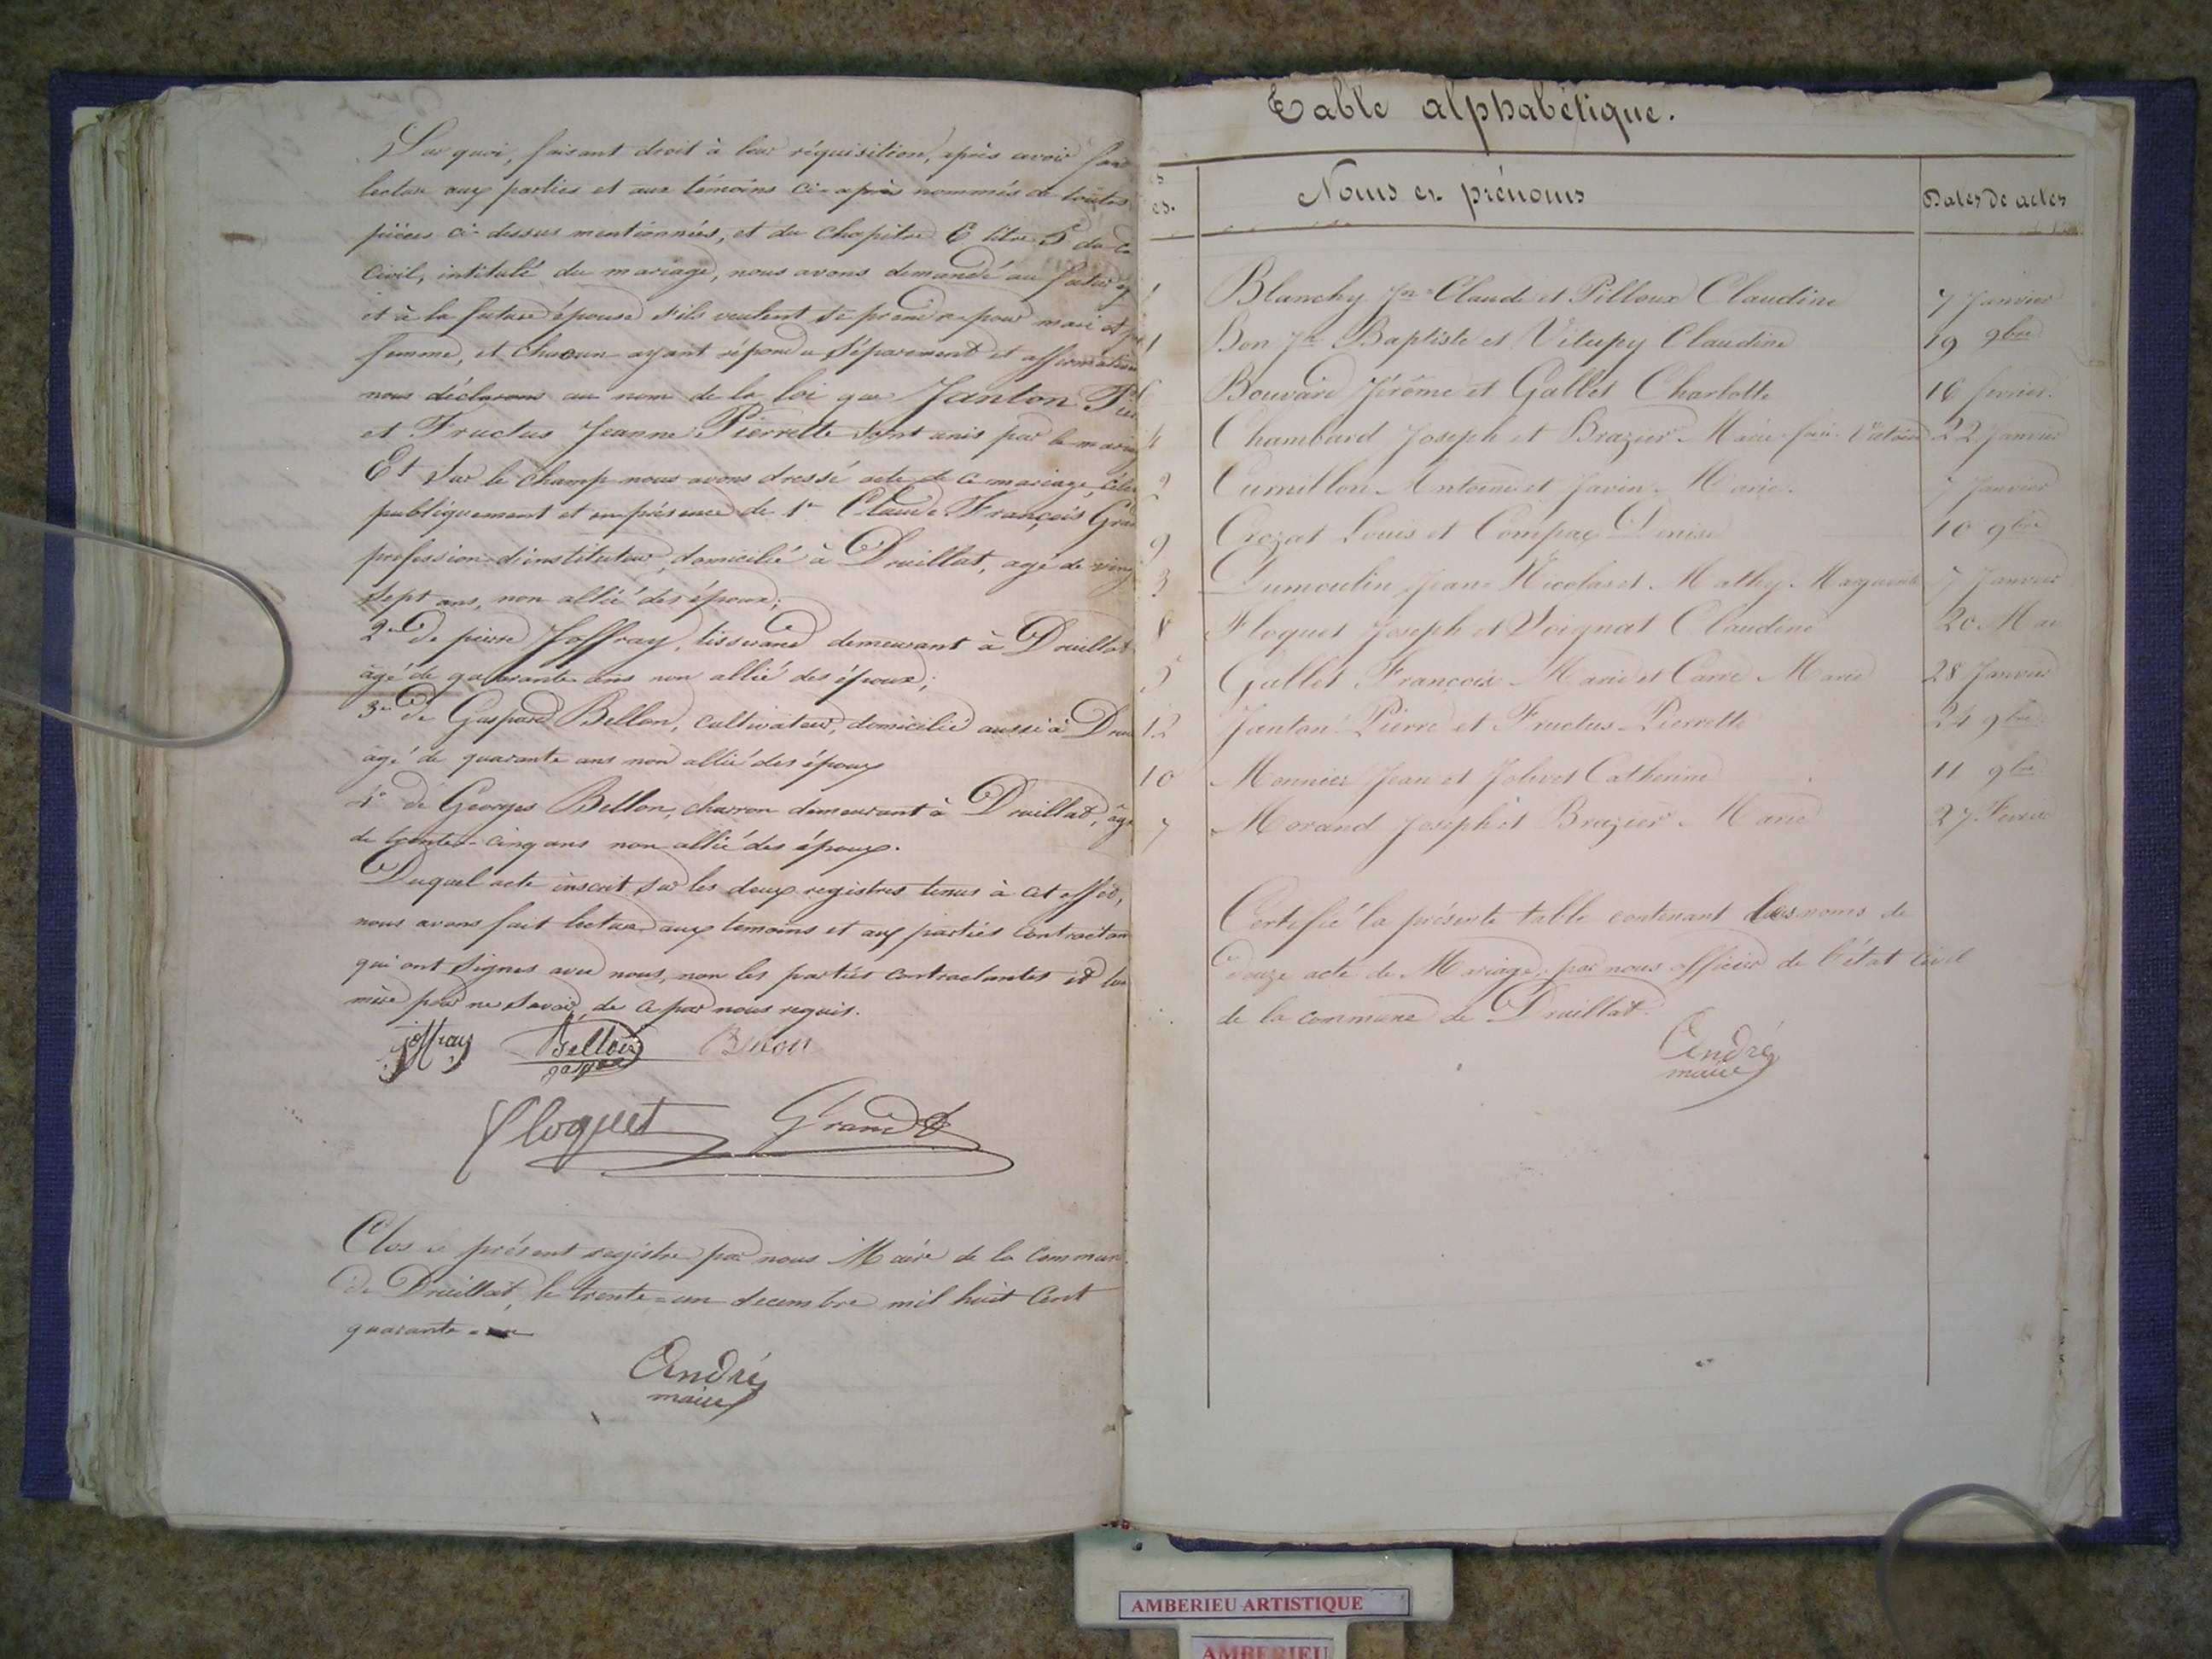 Sur quoi, faisant droit à leur réquisition, après avoir fait
lecture aux parties et aux témoins ci-après nommés de toutes
pièces ci-dessus mentionnées, et du chapitre 6 titre 5 du
civil, intitulé du mariage, nous avons demandé au futur
et à la future épouse s'ils veulent se prendre pour mari et
femme, et chacun ayant répondu séparément et
nous déclarons au nom de la loi que Janton
et Fructus Jeanne Pierrette sont unis par le
Et sur le champ nous avons dressé acte de ce mariage
publiquement et en présence de 1er Claude François
profession d'instituteur, domicilié à Druillat, agé de
sept ans, non allié des époux;
2e de pierre Joffray, tisserand demeurant à Druillat
âgé de quarante ans non allié des époux;
3e de Gaspard Bellon, cultivateur, domicilié aussi à
âgé de quarante ans non allié des époux
4° de Georges Bellon, charron demeurant à Druillat,
de trente-cinq ans non allié des époux.
Duquel acte inscrit sur les deux registres tenus à cet effet,
nous avons fait lecture aux temoins et aux parties
qui ont signés avec nous, non les parties contractantes et
mère pour ne savoir, de ce par nous requis.
joffray Bellon
gaspard
Floquet Grand
Clos le présent registre par nous Maire de la
de Druillat, le trente-un decembre mil huit Cent
quarante
André
maire
Table alphabétique.
es. Noms et prénoms Dates de actes
Blanchy Jn Claude et Pilloux Claudine 7 Janvier
Bon Jn Baptiste et Vitupy Claudine 19 9bre
Bouvard Jérôme et Gallet Charlotte 16 fevrier.
4 Chambard Joseph et Brazier Marie 22 Janvier
2 Curnillon Antoine et Javin Marie. 7 Janvier
9 Crozat Louis et Compaq Denise 10 9bre
3 Dumoulin Jean Nicolas et Mathy Marguerite 7 Janvier
8 Floquet Joseph et Soignat Claudine 20 Mai
5 Gallet François Marie et Carre Marie 28 Janvier
12 Janton Pierre et Fructus Pierrette 24 9bre
10 Monnier Jean et Jolivet Catherine 11 9bre
7 Morand Joseph et Brazier Marie 27 Fevrier
Certifié la présente table contenant les noms de
Douze acte de Mariage, par nous officier de l'état Civil
de la commune de Druillat.
André
maire
AMBERIEU ARTISTIQUE
AMBERIEU